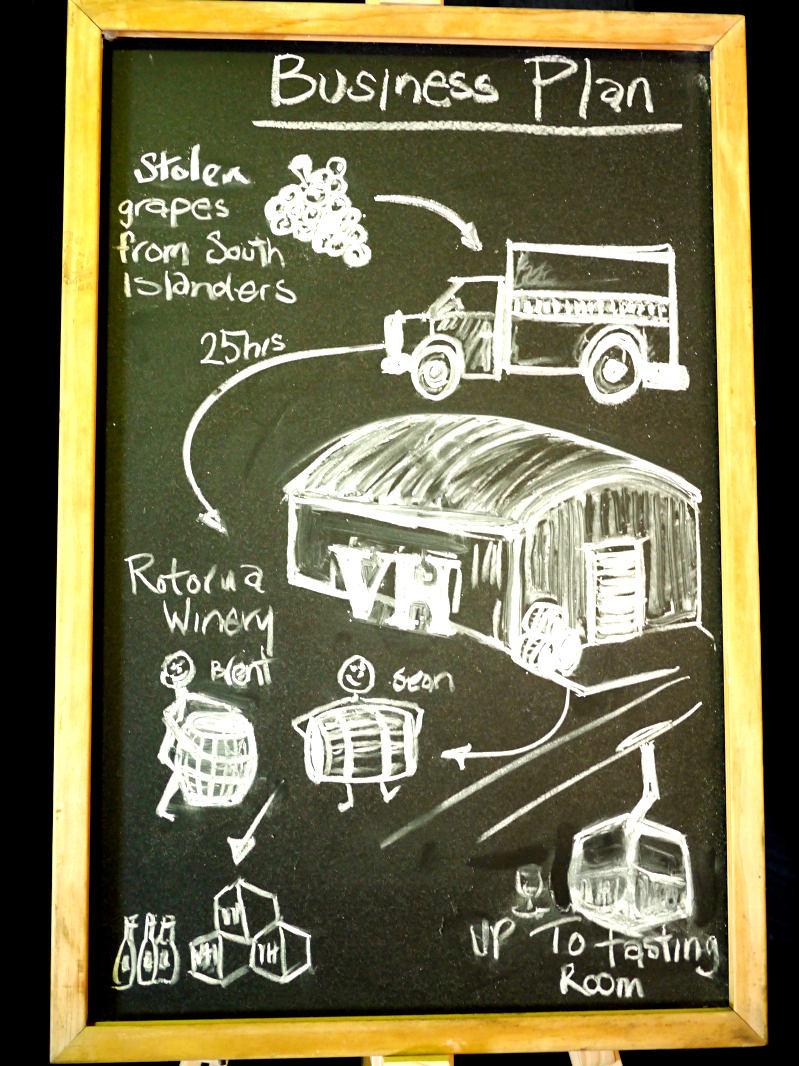 Business Plan
Stolen
grapes
from South
Islanders
25hrs
VH
Rotorua
Winery
Brent
Sean
VH
VH
VH
UP To tasting
Room